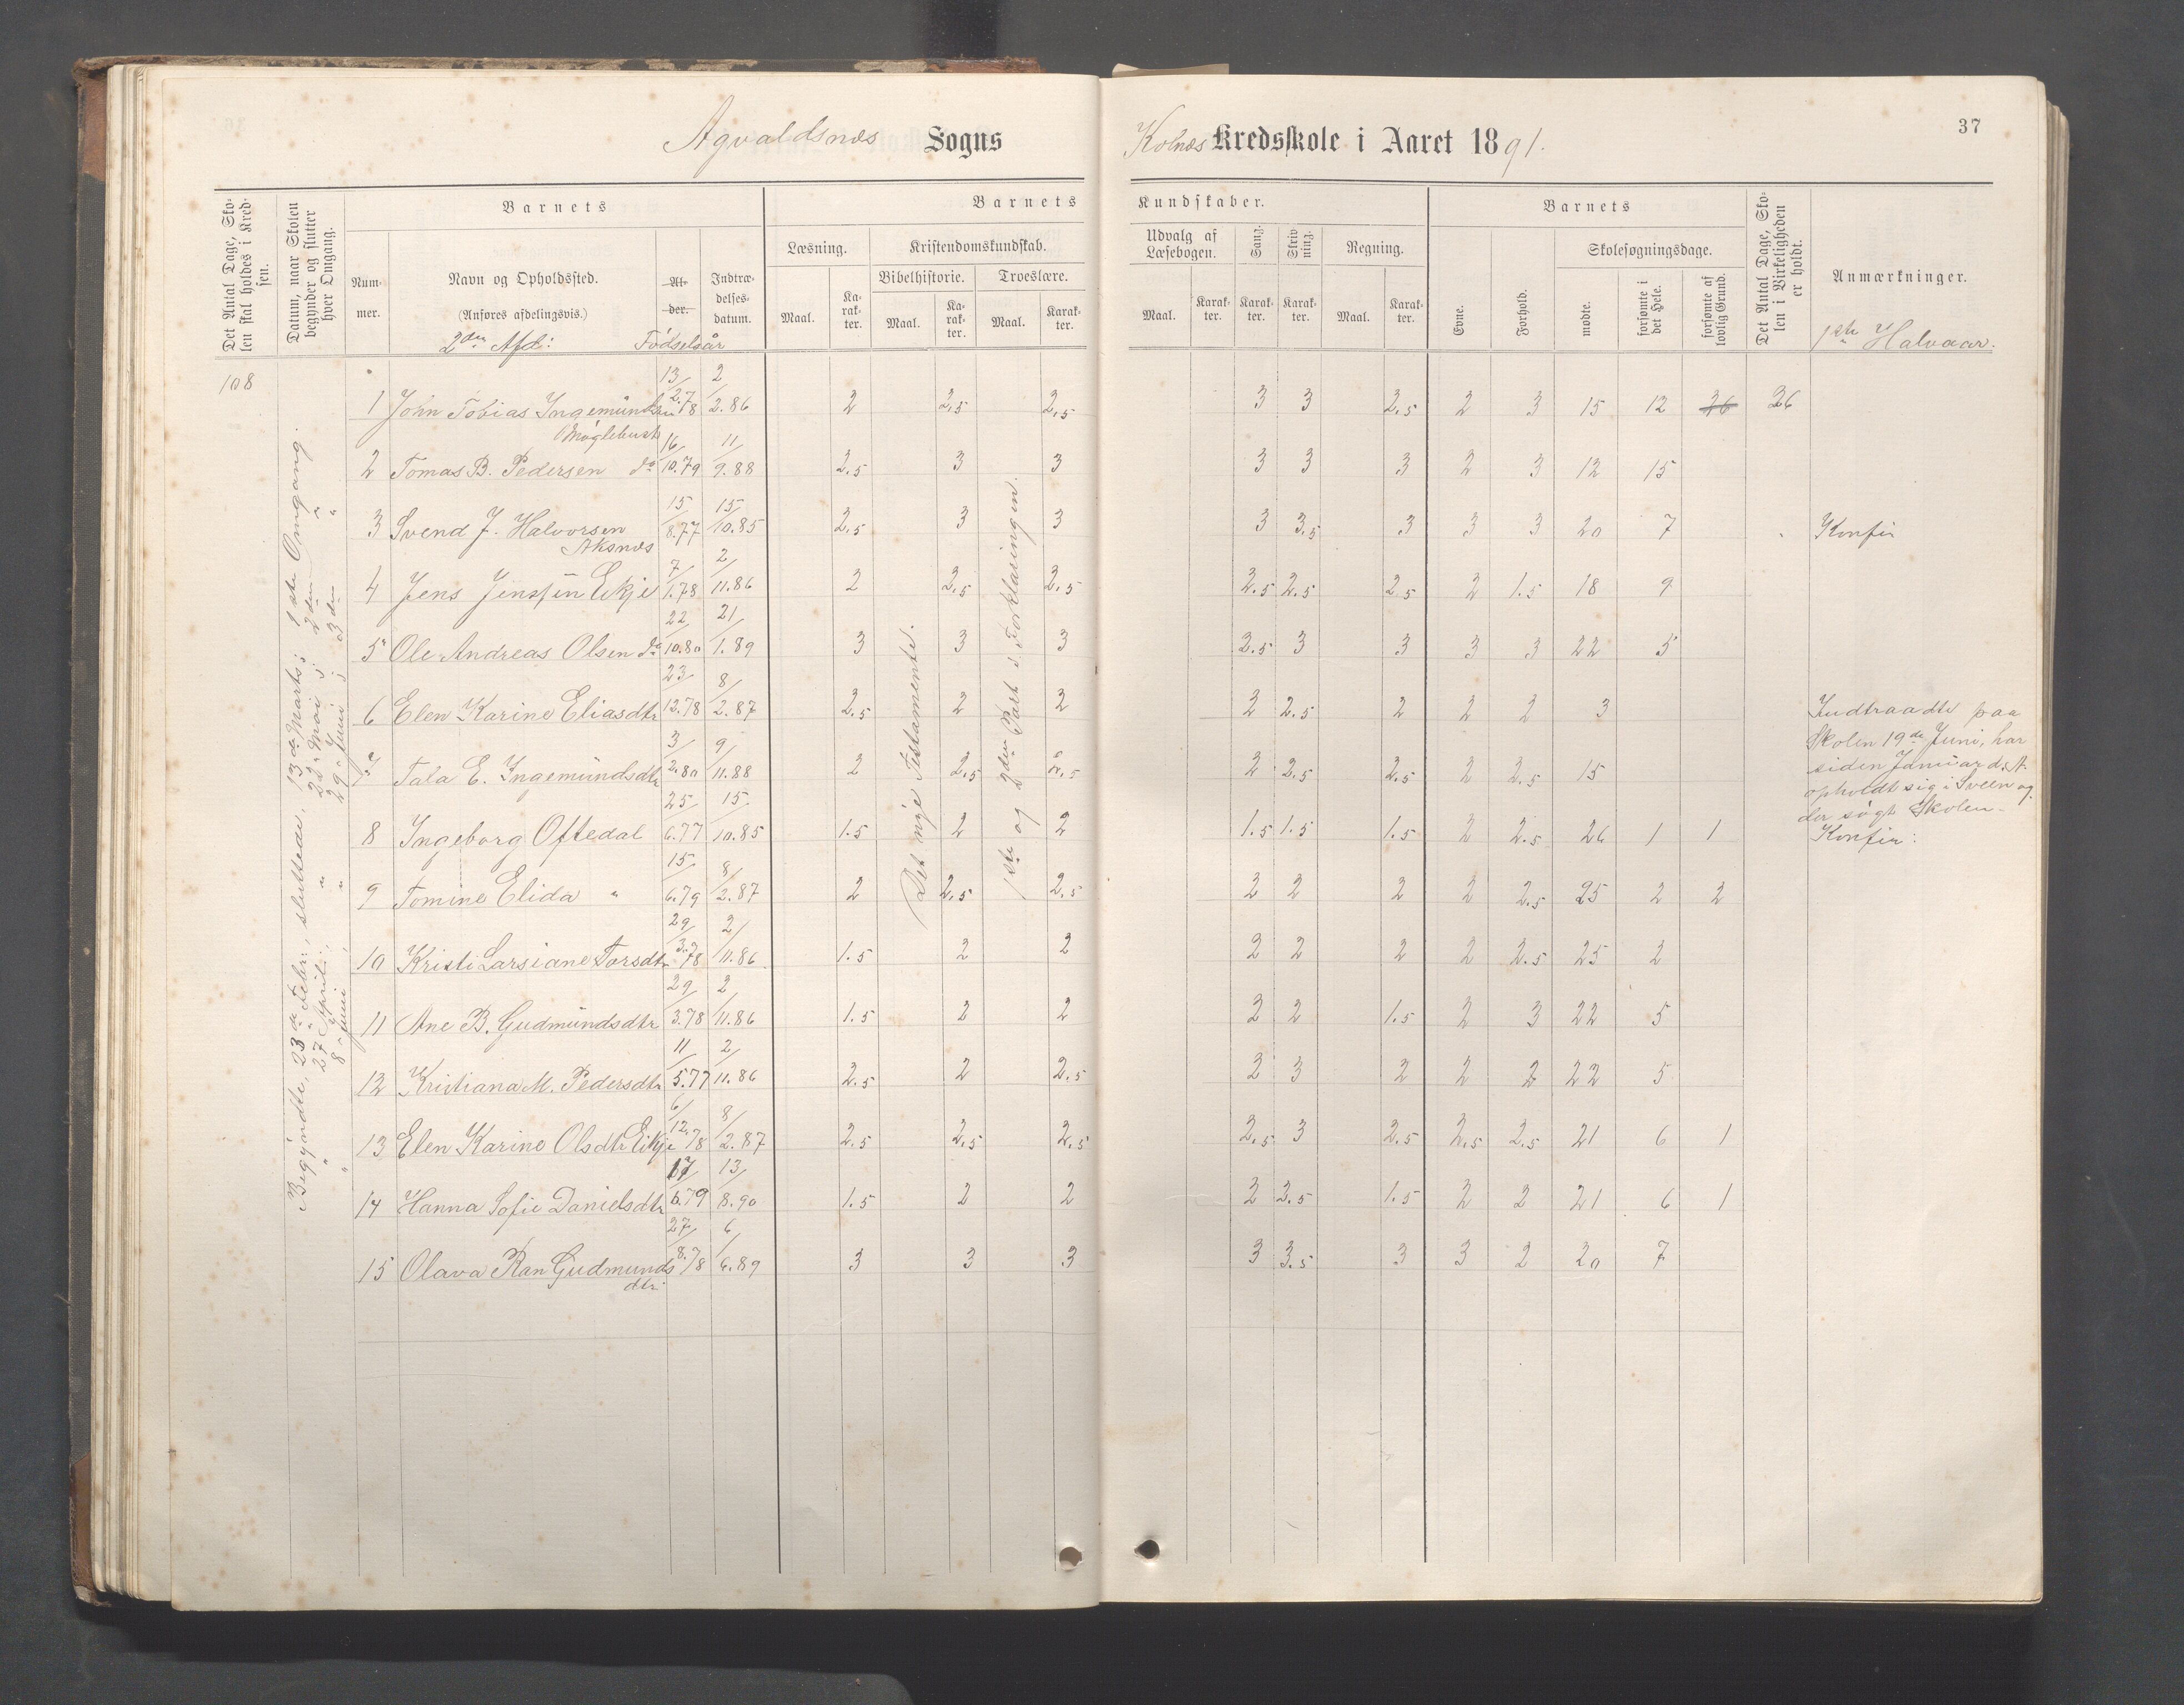 37
Agvaldsnæs Sogns Kolnæs Kredsskole i Aaret 1891.
Det Antal Dage, Skolen skal holdes i Kredsen.
Datum, naar Skolen begynder og slutter hver Omgang.
Barnets
Nummer.
Navn og Opholdssted.
(Anføres afdelingsvis.)
2den Afd:
Alder.
Fødselsår
Indtrædelsesdatum.
Barnets Kundskaber.
Læsning.
Maal.
Karakter.
Kristendomskundskab.
Bibelhistorie.
Maal.
Karakter.
Troeslære.
Maal.
Karakter.
Udvalg af Læsebogen.
Maal.
Karakter.
Sang.
Karakter.
Skrivning.
Karakter.
Regning.
Maal.
Karakter.
Barnets
Evne.
Forhold.
Skolesøgningsdage.
mødte.
forsømte i det Hele.
forsømte af lovlig Grund.
Det Antal Dage, Skolen i Virkeligheden er holdt.
Anmærkninger.
1ste Halvaar.
108
Begyndte 23de Febr:, sluttede 13de Marts; 1ste Omgang.
" 27 April; " 22 " Mai ; 2den "
" 8 " Juni; " 29 " Juni ; 3den "
Det nye Testamente.
1ste og 2den Part i Forklaringen.
1 John Tobias Ingemundsen 13/2.78 2/2.86 2 2,5 2,5 3 3 2,5 2 3 15 12 26 26
Møglebust
2 Tomas B. Pedersen do 16/10.79 11/9.88 2,5 3 3 3 3 3 2 3 12 15
3 Svend J. Halvorsen 15/8.77 15/10.85 2,5 3 3 3 3,5 3 3 3 20 7 Konfir
Aksnæs
4 Jens Jensen Eikje 7/1.78 2/11.86 2 2,5 2,5 2,5 2,5 2,5 2 1,5 18 9
5 Ole Andreas Olsen do 22/10.80 21/1.89 3 3 3 2,5 3 3 3 3 22 5
6 Elen Karine Eliasdtr 23/12.78 8/2.87 2,5 2 2 2 2,5 2 2 2 3
Indtraadte paa
Skolen 19de Juni, har
siden Januar d.A.
opholdt sig i Sveen og
der søgt Skolen.
7 Tala E. Ingemundsdtr 3/2.80 9/11.88 2 2,5 2,5 2 2,5 2,5 2 2,5 15
8 Ingeborg Oftedal 25/6.77 15/10.85 1.5 2 2 1.5 1.5 1.5 2 2,5 26 1 1 Konfir:
9 Tomine Elida " 15/6.79 8/2.87 2 2,5 2,5 2 2 2 2 2,5 25 2 2
10 Kristi Larsiane Torsdtr 29/3.78 2/11.86 1.5 2 2 2 2 2 2 2,5 25 2
11 Ane B. Gudmundsdtr 29/3.78 2/11.86 1.5 2 2 2 2 1.5 2 3 22 5
12 Kristiana M. Pedersdtr 11/5.77 2/11.86 2,5 2 2,5 2 3 2 2 2 22 5
13 Elen Karine Olsdtr Eikje 6/12.78 8/2.87 2,5 2,5 2,5 2,5 3 2,5 2,5 2,5 21 6 1
14 Hanna Sofie Danielsdtr 17/6.79 13/8.90 1.5 2 2 2 2,5 1.5 2 2 21 6 1
15 Olava Ran Gudmunds 27/8.78 6/6.89 3 3 3 3 3,5 3 3 2 20 7
dtr